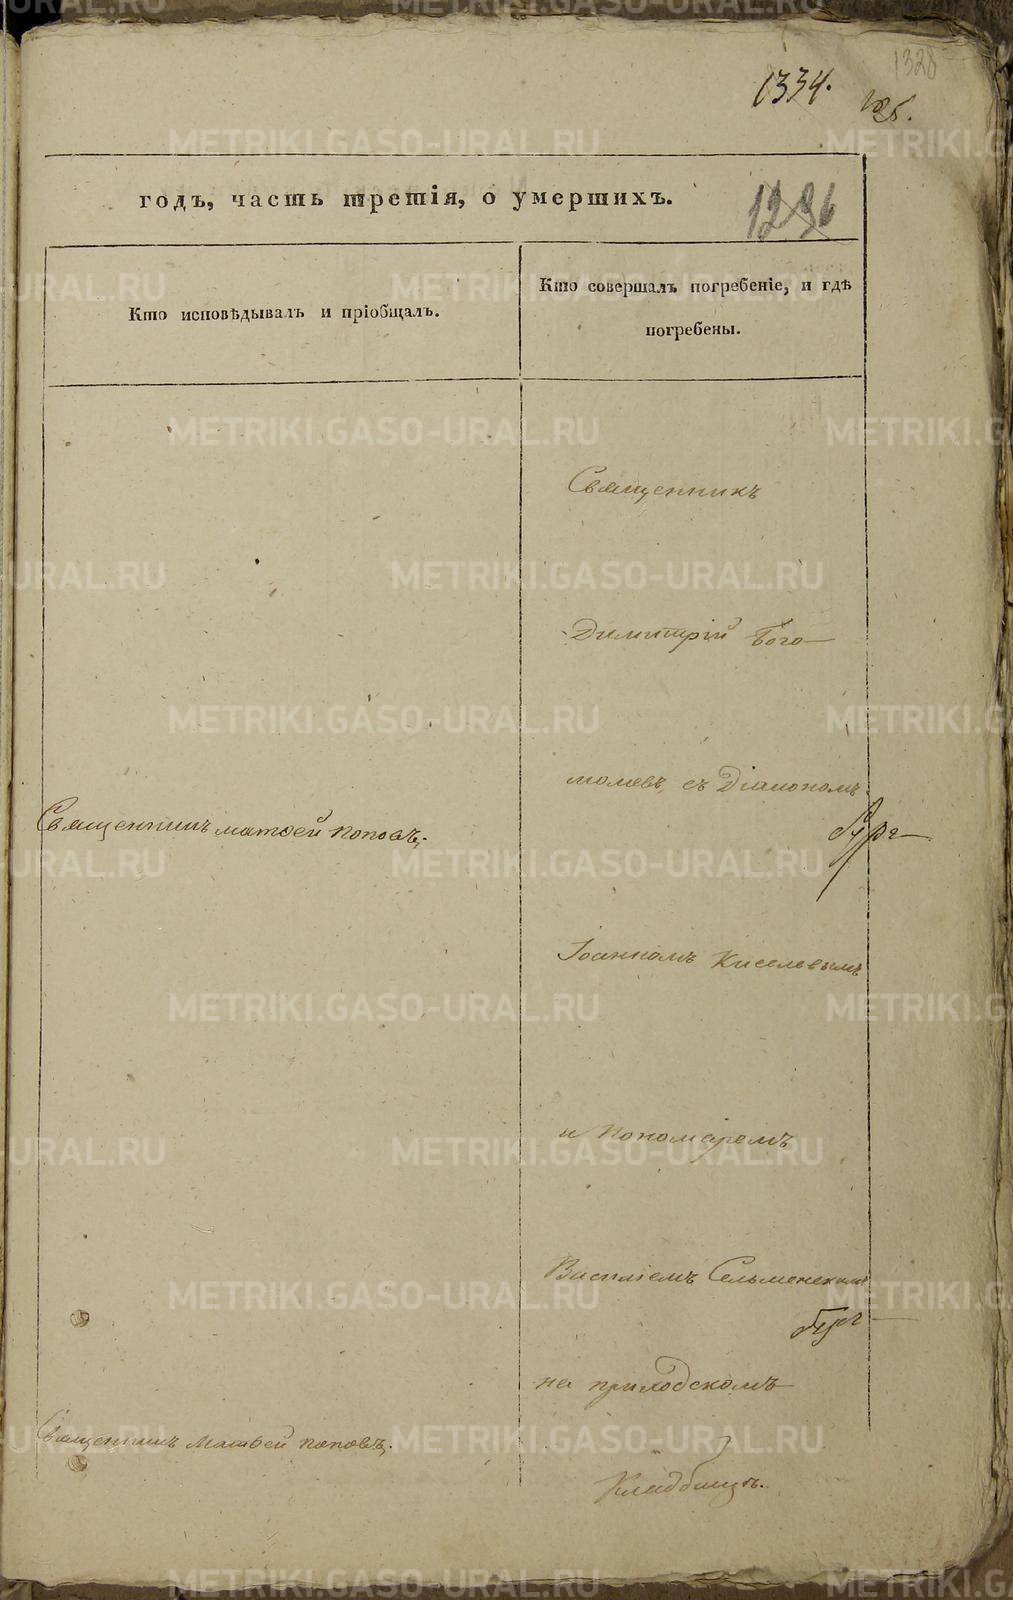 1328
1334.
годъ, часть третія, о умершихъ.
1236
Кто исповѣдывалъ и пріобщалъ.
Кто совершалъ погребеніе, и гдѣ
погребены.
Священникъ
Димитрій Бого-
моловъ, съ Діакономъ
Священникъ матвей поповъ,
Іоанномъ Киселевымъ
и пономаремъ
Василіемъ Сельменскимъ
на приходскомъ
Священникъ Матвей поповъ,
Кладбищѣ.
METRIKI.GASO-URAL.RU